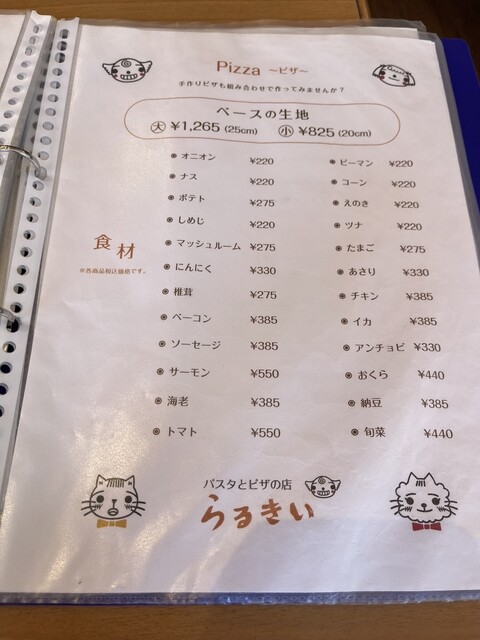 Pizza ～ピザ～
手作りピザも組み合わせで作ってみませんか？
ベースの生地
大 ¥1,265 (25cm) 小 ¥825 (20cm)
食材
※各商品税込価格です。
オニオン ¥220
ナス ¥220
ポテト ¥275
しめじ ¥220
マッシュルーム ¥275
にんにく ¥330
椎茸 ¥275
ベーコン ¥385
ソーセージ ¥385
サーモン ¥550
海老 ¥385
トマト ¥550
ピーマン ¥220
コーン ¥220
えのき ¥220
ツナ ¥220
たまご ¥275
あさり ¥330
チキン ¥385
イカ ¥385
アンチョビ ¥330
おくら ¥440
納豆 ¥385
旬菜 ¥440
パスタとピザの店
らるきい